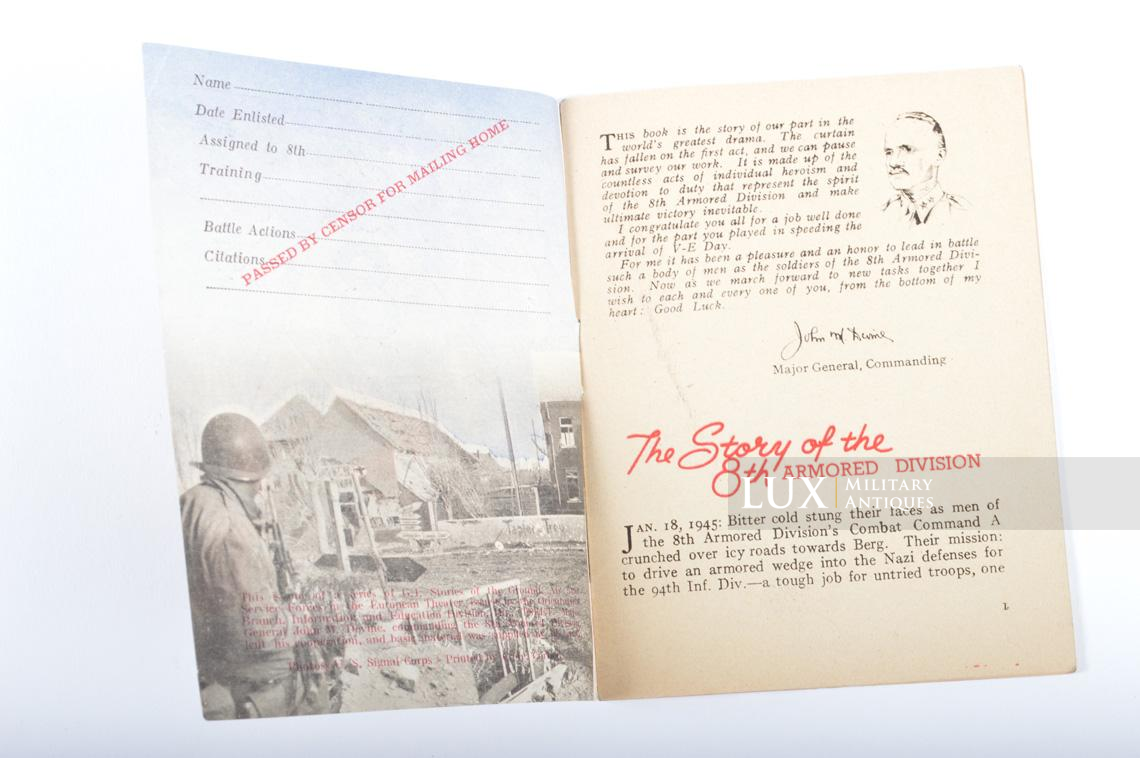 Name
Date Enlisted
Assigned to 8th
Training
Battle Actions
Citations
PASSED BY CENSOR FOR MAILING HOME
This is one of a series of G.I. Stories of the Ground, Air and
Service Forces in the European Theater, issued by the Orientation
Branch, Information and Education Division,
General John M. Devine, commanding the 8th Armored Division,
lent his cooperation, and basic material was supplied
Photos: U. S. Signal Corps - Printed by
THIS book is the story of our part in the
world's greatest drama. The curtain
has fallen on the first act, and we can pause
and survey our work. It is made up of the
countless acts of individual heroism and
devotion to duty that represent the spirit
of the 8th Armored Division and make
ultimate victory inevitable.
I congratulate you all for a job well done
and for the part you played in speeding the
arrival of V-E Day.
For me it has been a pleasure and an honor to lead in battle
such a body of men as the soldiers of the 8th Armored Divi-
sion. Now as we march forward to new tasks together I
wish to each and every one of you, from the bottom of my
heart: Good Luck.
John M. Devine
Major General, Commanding
The Story of the
8th ARMORED DIVISION
LUX MILITARY
ANTIQUES
JAN. 18, 1945: Bitter cold stung their faces as men of
the 8th Armored Division's Combat Command A
crunched over icy roads towards Berg. Their mission:
to drive an armored wedge into the Nazi defenses for
the 94th Inf. Div.—a tough job for untried troops, one